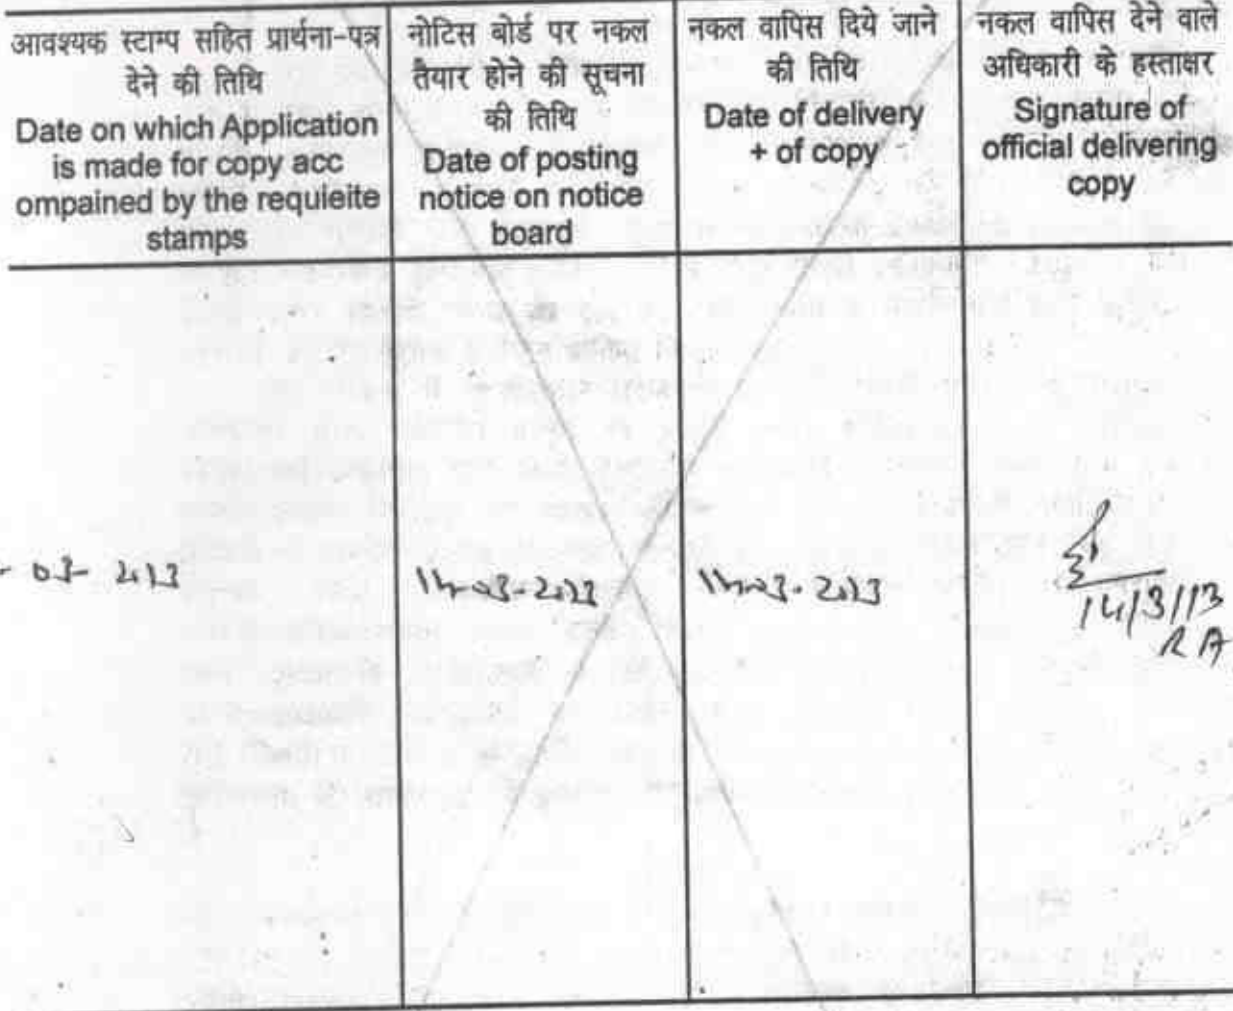 आवश्यक स्टाम्प सहित प्रार्थना-पत्र
देने की तिथि
Date on which Application
is made for copy acc
ompained by the requieite
stamps
नोटिस बोर्ड पर नकल
तैयार होने की सूचना
की तिथि
Date of posting
notice on notice
board
नकल वापिस दिये जाने
की तिथि
Date of delivery
+ of copy
नकल वापिस देने वाले
अधिकारी के हस्ताक्षर
Signature of
official delivering
copy
- 03- 2013
14-03-2013
14-03-2013
14/3/13
RA